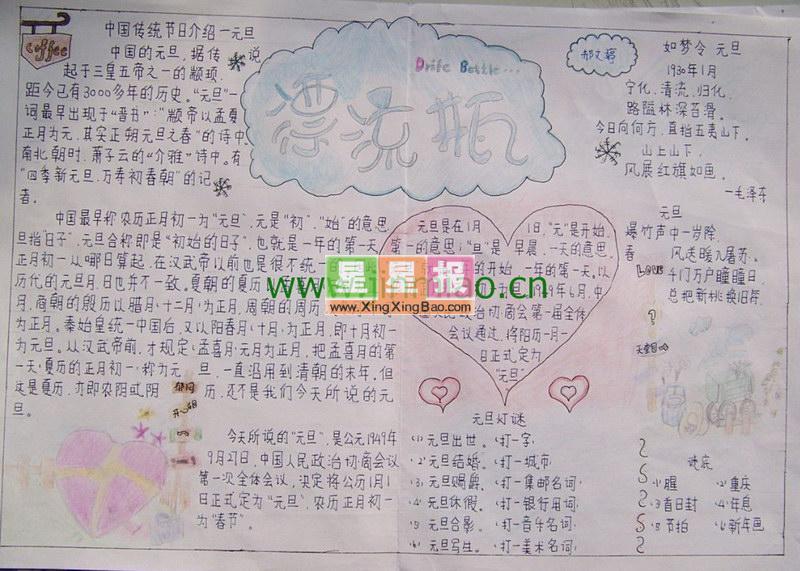 Coffee
中国传统节日介绍一元旦
中国的元旦，据传说
起于三皇五帝之一的颛顼，
距今已有3000多年的历史。"元旦"一
词最早出现于"晋书"："颛帝以孟夏
正月为元，其实正朔元旦之春"的诗中。
南北朝时，萧子云的"介雅"诗中。有
"四季新元旦，万寿初春朝"的记
者。
中国最早称农历正月初一为"元旦"，元是"初"、"始"的意思，
旦指"日子"，元旦合称即是"初始的日子"，也就是一年的第一天。
正月初一从哪日算起，在汉武帝以前也是很不统一的
历代的元旦月、日也并不一致。夏朝的夏历
月，商朝的殷历以腊月（十二月）为正月，周朝的周历
为正月。秦始皇统一中国后，又以阳春月（十月）为正月，即十月初一
为元旦。从汉武帝前，才规定（孟喜月）元月为正月，把孟喜月的第
一天（夏历的正月初一）称为元旦，一直沿用到清朝的末年。但
这是夏历，亦即农阴或阴历，还不是我们今天所说的元
旦。
今天所说的"元旦"，是公元1949年
9月27日，中国人民政治协商会议
第一次全体会议，决定将公历1月1
日正式定为"元旦"，农历正月初一
为"春节"。
Drife Bottle...
漂流瓶
元旦是在1月1日，"元"是开始，
第一的意思；"旦"是早晨，一天的意思。
的开始，一年的第一天。以
49年6月，中
民政治协商会第一届全体
会议通过，将阳历一月一
日正式定为
"元旦"
元旦灯谜
(1) 元旦出世。（打一字）
(2) 元旦结婚。（打一城市）
(3) 元旦赐爵。（打一集邮名词）
(4) 元旦休假。（打一银行用词）
(5) 元旦合影。（打一音乐名词）
(6) 元旦写生。（打一美术名词）
如梦令 元旦
1930年1月
宁化、清流、归化，
路隘林深苔滑。
今日向何方，直指五夷山下。
山上山下，
风展红旗如画。
—毛泽东
元旦
爆竹声中一岁除，
春风送暖入屠苏。
千门万户曈曈日
总把新桃换旧符。
Love
谜底
(1) 腥 (2) 重庆
(3) 首日封 (4) 年息
(5) 节拍 (6) 新年画
星星报
www.XingXingBao.com